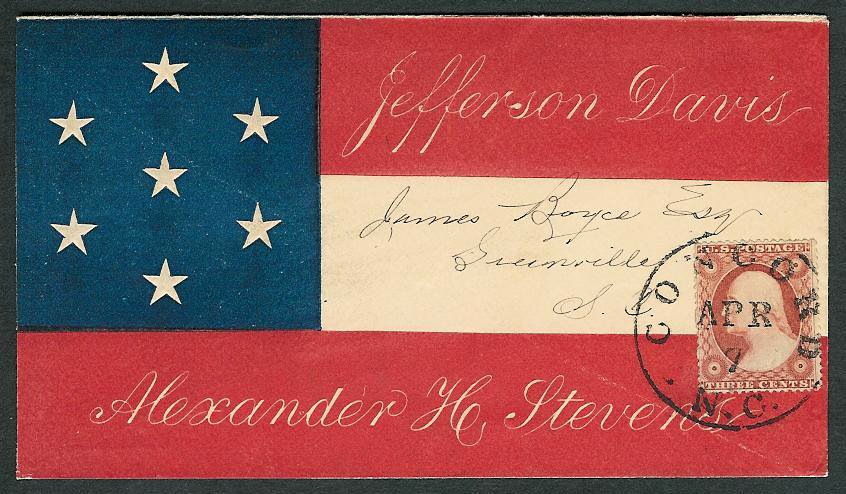 Jefferson Davis
James Boyce Esq
Greenville
S. C.
U.S. POSTAGE
THREE CENTS
CONCORD
APR
7
N.C.
Alexander H. Stevens